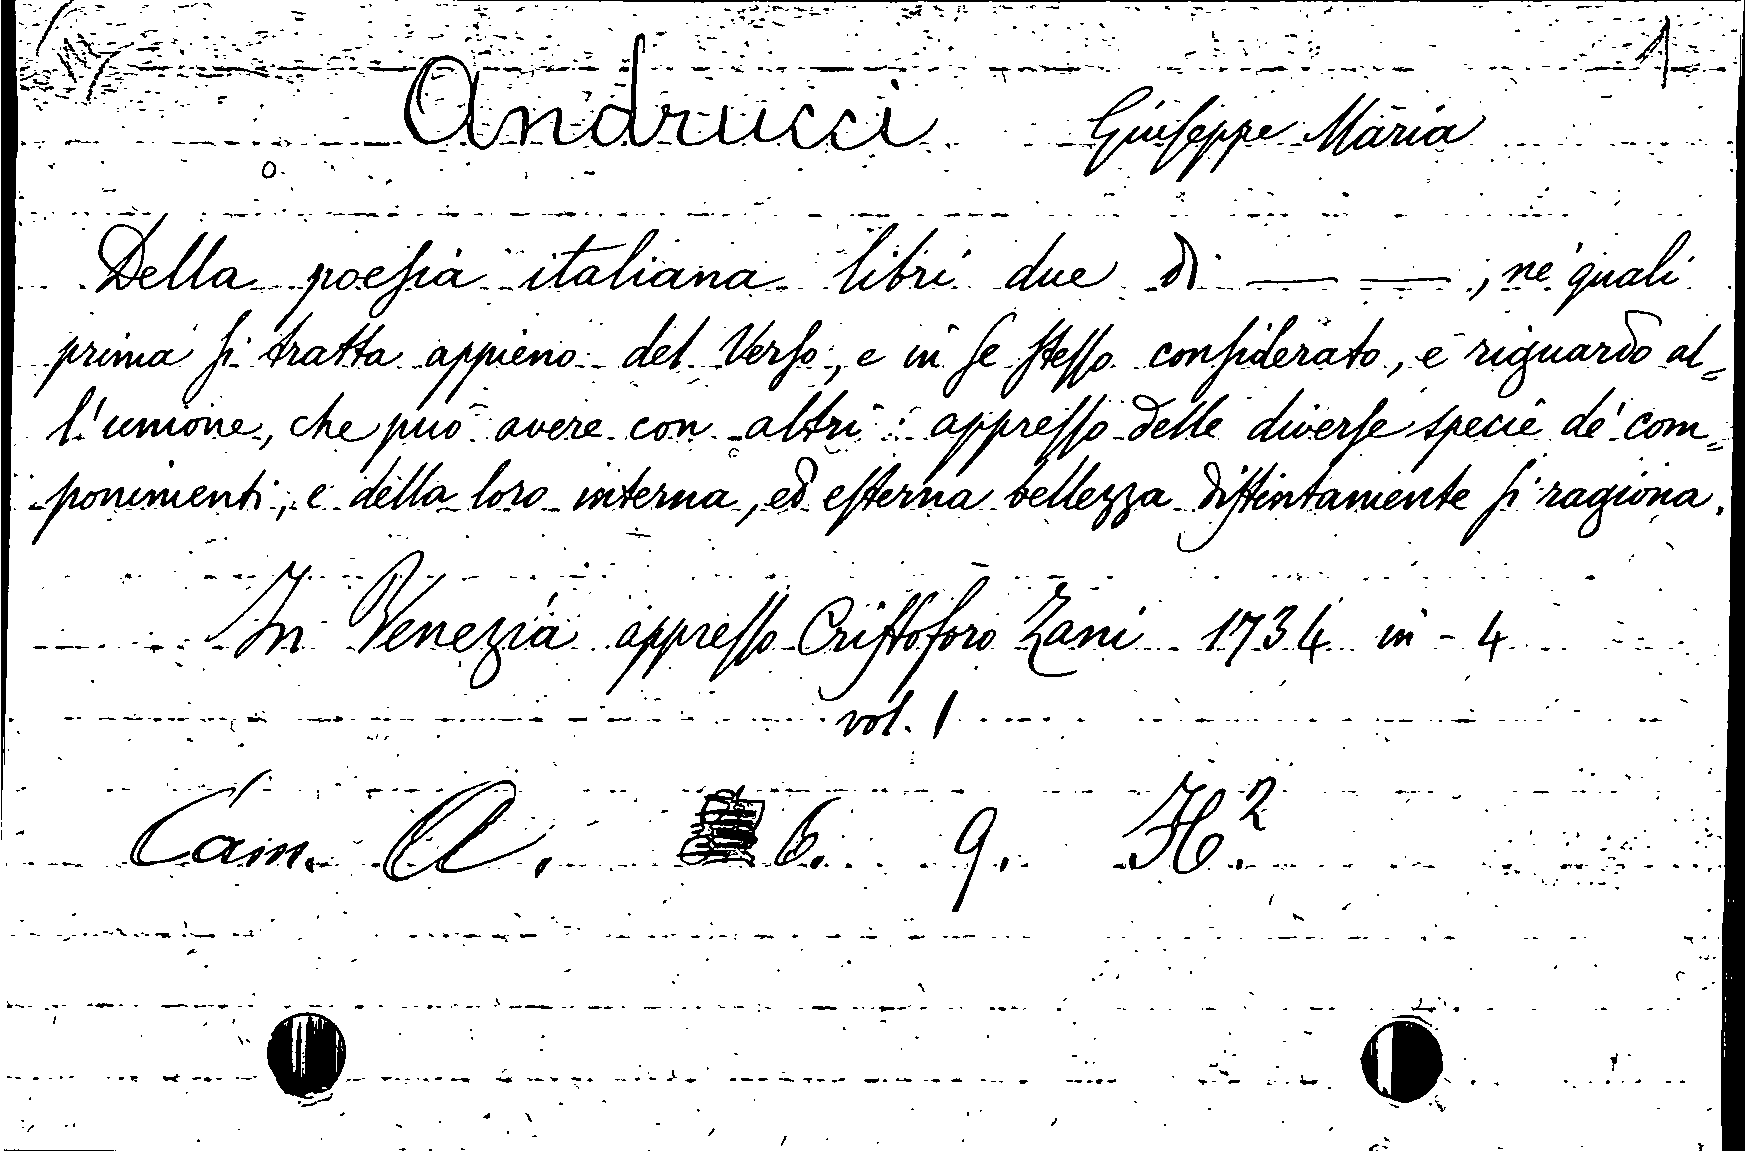 1
Andrucci Giuseppe Maria
Della poesia italiana libri due di — — , ne' quali
prima si tratta appieno del Verso, e in se stesso considerato, e riguardo al=
l'unione, che può avere con altri: appresso delle diverse specie de' com=
ponimenti, e della loro interna, ed esterna bellezza distintamente si ragiona.
In Venezia appresso Cristoforo Zani 1734 in-4
vol. 1
Cam. A. 6. 9. H².